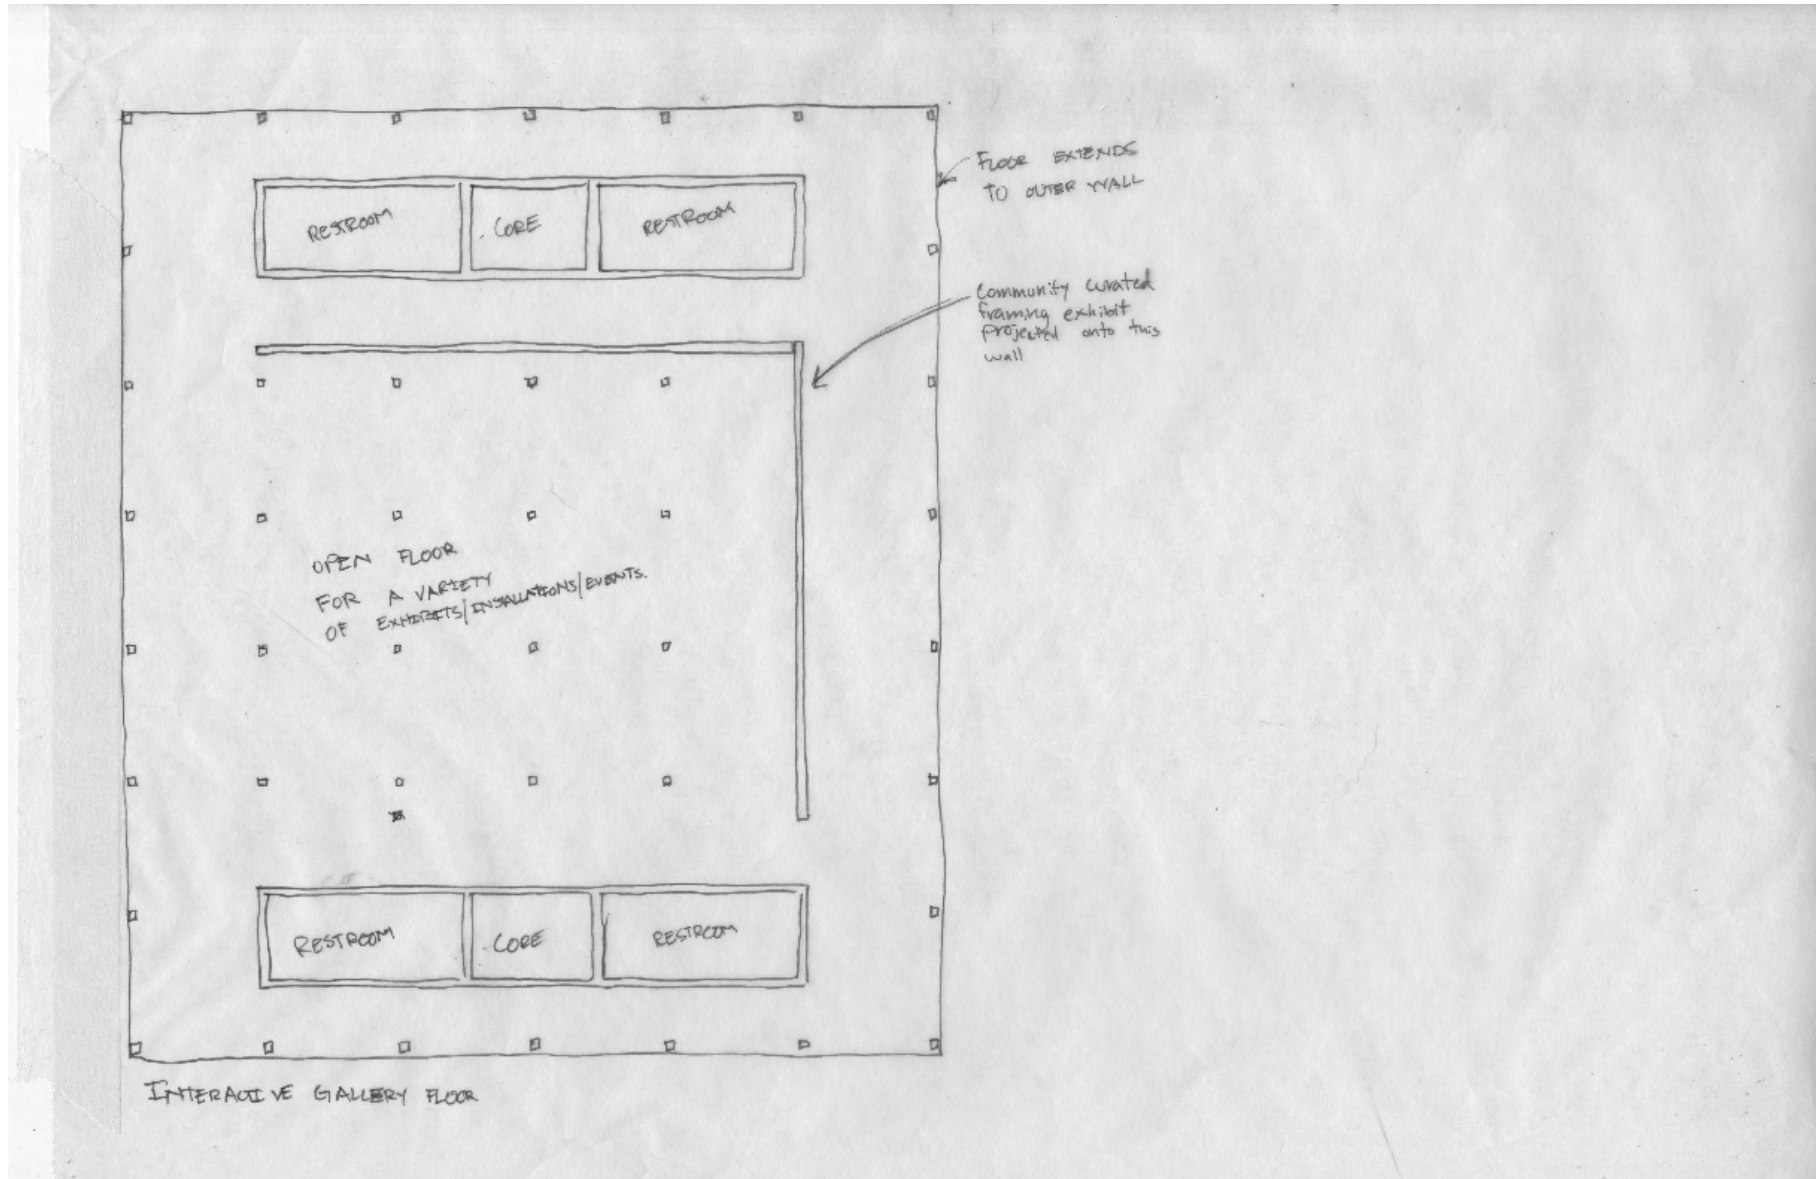 RESTROOM
CORE
RESTROOM
FLOOR EXTENDS
TO OUTER WALL
Community curated
framing exhibit
projected onto this
wall
OPEN FLOOR
FOR A VARIETY
OF EXHIBITS/INSTALLATIONS/EVENTS.
RESTROOM
CORE
RESTROOM
INTERACTIVE GALLERY FLOOR